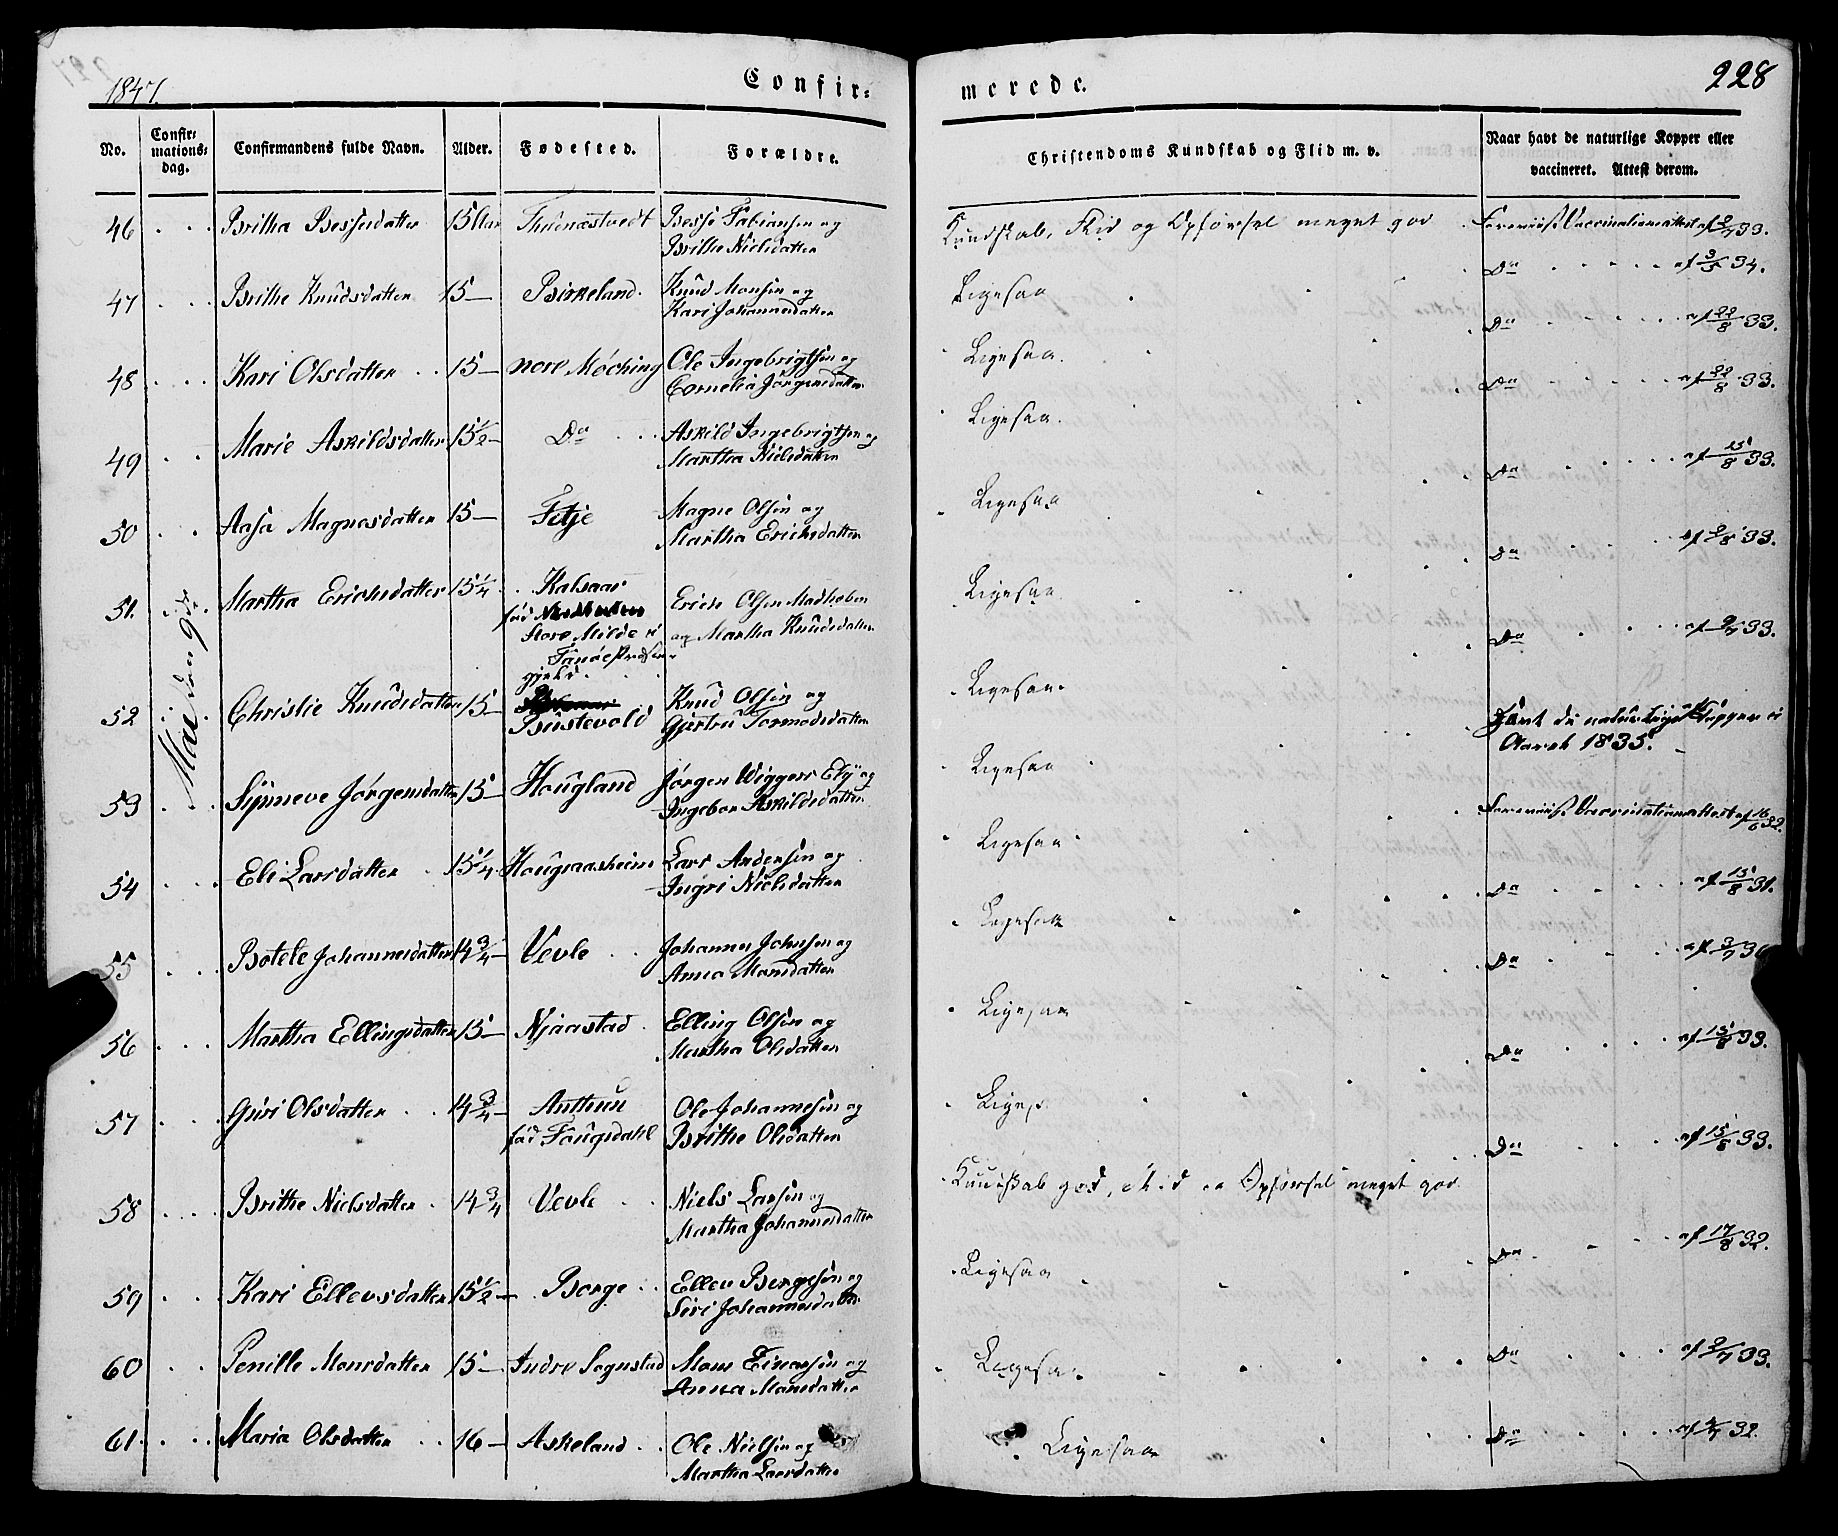 1847.
Confir-
merede.
228
No.
Confir-
mations-
dag.
Confirmandens fulde Navn.
Alder.
Fødested.
Forældre.
Christendoms Kundskab og Flid m. v.
Naar havt de naturlige Kopper eller
vaccineret. Attest derom.
Mai den 9de
46 Britha Bessesdatter 15 Aar Besse Fabiansen og
Brithe Nielsdatter
Kundskab, Flid og Opførsel meget god Foreviist Vaccinationsattest af 33.
47 Brithe Knudsdatter 15 Birkeland. Knud Monsen og
Kari Johannesdatter
Ligesaa Do af 3/5 34.
48 Kari Olsdatter 15 nore Møching Ole Ingebrigtsen og
Cornelia Jørgensdatter
Ligesaa. Do af 22/8 33.
49 Marie Askildsdatter 15½ Do Askild Ingebrigtsen og
Martha Nielsdatter
Ligesaa. Do af 22/8 33.
50 Aasa Magnesdatter 15 Fitje Magne Olsen og
Martha Erichsdatter
Ligesaa Do af 15/8 33.
51. Martha Erichsdatter 15¼ Kalsaas
fød
Store Milde i
Fanøe Præste-
gjeld.
Erich Olsen Madheben
og Martha Knudsdatter
Ligesaa Do af 33.
52 Christie Knudsdatter 15 Bustevold Knud Olsen og
Gjertru Tormodsdatter
Ligesaa Do af 33.
53 Synneve Jørgensdatter 15 Hougland Jørgen Wiggers Ely og
Ingebor Askildsdatter
Ligesaa Havt de naturlige Kopper i
Aaret 1835.
54 Eli Larsdatter 15¼ Hougaasheim Lars Andersen og
Ingri Nielsdatter
Ligesaa Foreviist Vaccinationsattest af 16/6 32.
55 Botele Johannesdatter 14¾ Vevle Johannes Johnsen og
Anna Monsdatter
Ligesaa Do af 15/8 31.
56 Martha Ellingsdatter 15 Njaastad Elling Olsen og
Martha Olsdatter
Ligesaa Do af 3/7
57 Guri Olsdatter 14¾ Anthun
fød Fougsdahl
Ole Johannesen og
Brithe Olsdatter
Ligesaa Do af 15/8 33.
58 Brithe Nielsdatter 14¾ Vevle Niels Larsen og
Martha Johannesdatter
Kundskab god, Flid og Opførsel meget god Do af 15/8 33.
59 Kari Ellevsdatter 15½ Borge Ellev Bergesen og
Siri Johannesdatter
Ligesaa Do af 17/8 32.
60 Penille Monsdatter 15 Indre Sognstad Mons Einarsen og
Anna Monsdatter
Ligesaa Do af 33.
61. Maria Olsdatter 16 Askeland Ole Nielsen og
Martha Larsdatter
Ligesaa Do af 32.